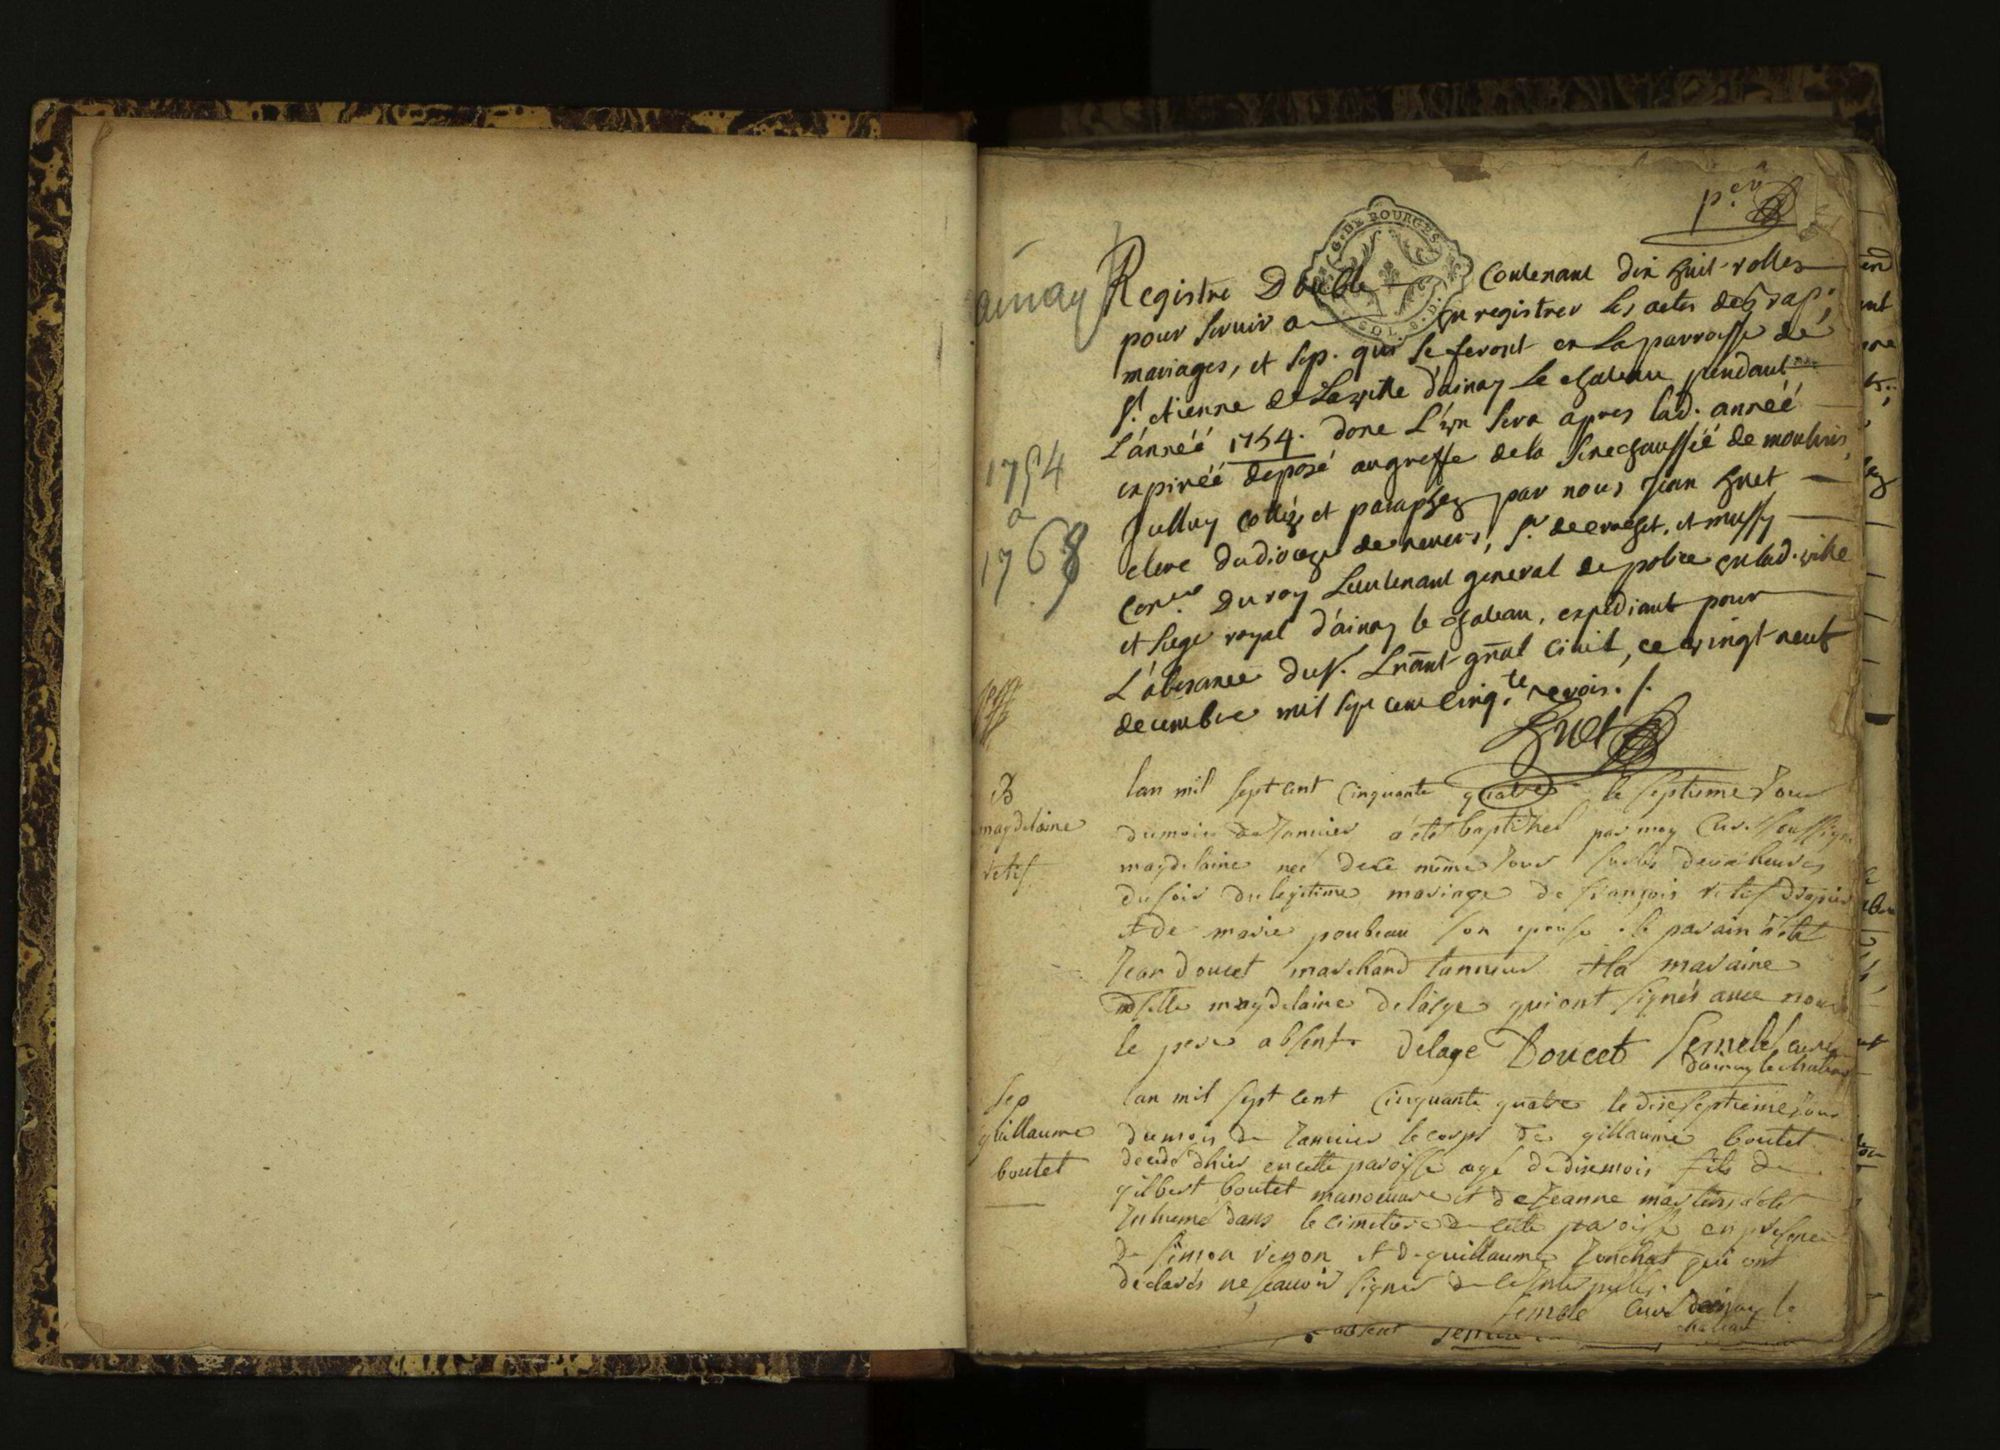 p.er
G. DE BOURGES
ainay
Registre Double Contenant dix huit rolles
pour servir a Enregistrer les actes de Bap.
mariages, et sep. qui se feront en la parroisse de
St. etienne de la ville d'ainay le chateau pendant
L'année 1754. dont L'un sera apres lad. année
expirée deposé au greffe de la Senechaussée de moulins,
1754
a
1768
cottez et paraphez par nous Jean huet
du dioceze de nevers, Sr. de et mussy
Coner. du roy Lieutenant general de police en lad. ville
et siege royal d'ainay le chateau, expediant pour
L'absance du Sr. Lnant gnal civil, ce vingt neuf
decembre mil sept cent cinq.te trois ./.
huet
B
magdelaine
retif
lan mil sept cent cinquante quatre le septieme Jour
du mois de Janvier a été baptisée par moy Curé soussigné
magdelaine née de ce même Jour sur les deux heures
du soir du legitime mariage de françois retif drapier
et de marie poubeau son epouse le parain a été
Jean Doucet marchand tanneur et la maraine
delle magdelaine delage qui ont signés avec nous
le pere absent. delage Doucet Semelé curé
dainay le chateau
Sep
guillaume
boutet
lan mil sept cent cinquante quatre le dixseptieme Jour
du mois de Janvier le corps de gillaume boutet
decedé dhier en cette paroisse agé de dix mois fils de
gilbert boutet manoeuvre et de Jeanne martin a été
Inhumé dans le cimetiere de cette paroisse en presence
de simon venon et de guillaume Jonchat qui ont
declarés ne scavoir signer de ce Interpellés.
Semelé curé dainay le
chateau
absent